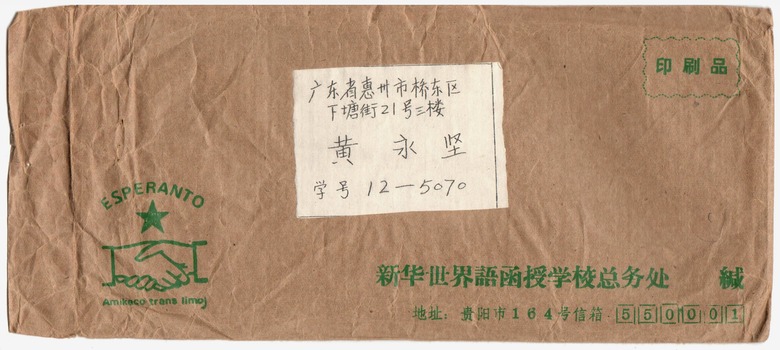 印刷品
广东省惠州市桥东区
下塘街21号三楼
黄永坚
学号 12-5070
ESPERANTO
Amikeco trans limoj
新华世界語函授学校总务处 缄
地址：贵阳市164号信箱 550001